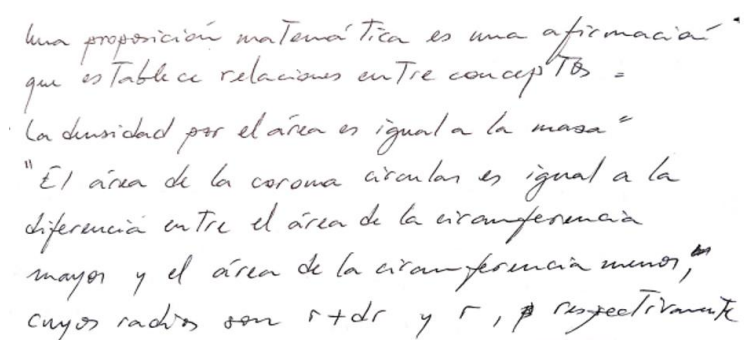 Una proposición matemática es una afirmación
que establece relaciones entre conceptos =
La densidad por el área es igual a la masa"
"El área de la corona circular es igual a la
diferencia entre el área de la circunferencia
mayor y el área de la circunferencia menor,"
cuyos radios son r+dr y r, respectivamente